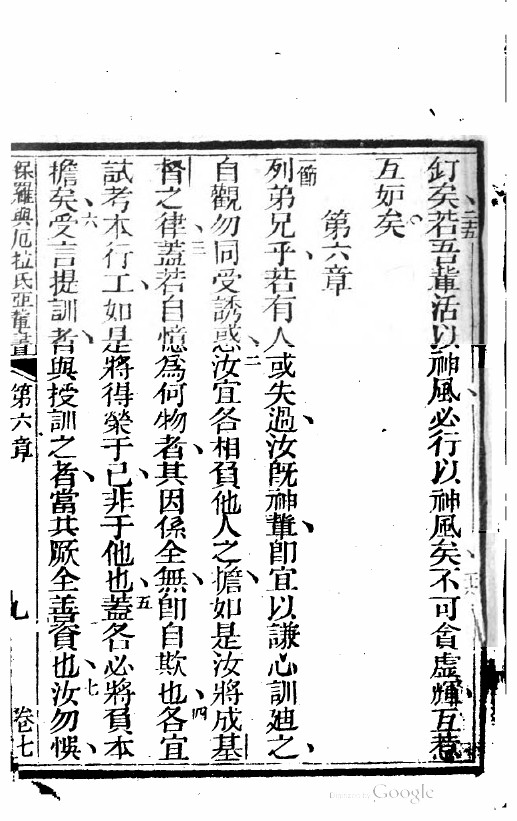 釘矣二五若吾輩活以神風必行以神風矣二六不可貪虛輝互惹
互妒矣
第六章
一節
列弟兄乎若有人或失過汝既神輩即宜以謙心訓迪之
自觀勿同受誘惑二汝宜各相負他人之擔如是汝將成基
督之律三蓋若自憶為何物者其因係全無即自欺也四各宜
試考本行工如是將得榮于己非于他也五蓋各必將負本
擔矣六受言提訓者與授訓之者當共厥全善資也七汝勿悞
保羅與厄拉氏亞輩書 第六章 九 卷七
Digitized by Google